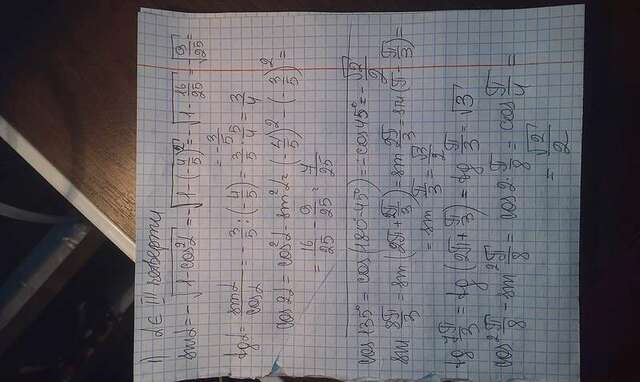 1) α ∈ III четверти
sinα = -√(1-cos²α) = -√(1-(-4/5)²) = -√(1-16/25) = -√(9/25) =
= -3/5
tgα = sinα/cosα = -3/5 : (-4/5) = 3/5 · 5/4 = 3/4
cos2α = cos²α - sin²α = (-4/5)² - (-3/5)² =
= 16/25 - 9/25 = 7/25
cos135° = cos(180°-45°) = -cos45° = -√2/2
sin 8π/3 = sin(2π + 2π/3) = sin 2π/3 = sin(π - π/3) =
= sin π/3 = √3/2
tg 7π/3 = tg(2π + π/3) = tg π/3 = √3
cos² π/8 - sin² π/8 = cos2·π/8 = cos π/4 =
= √2/2